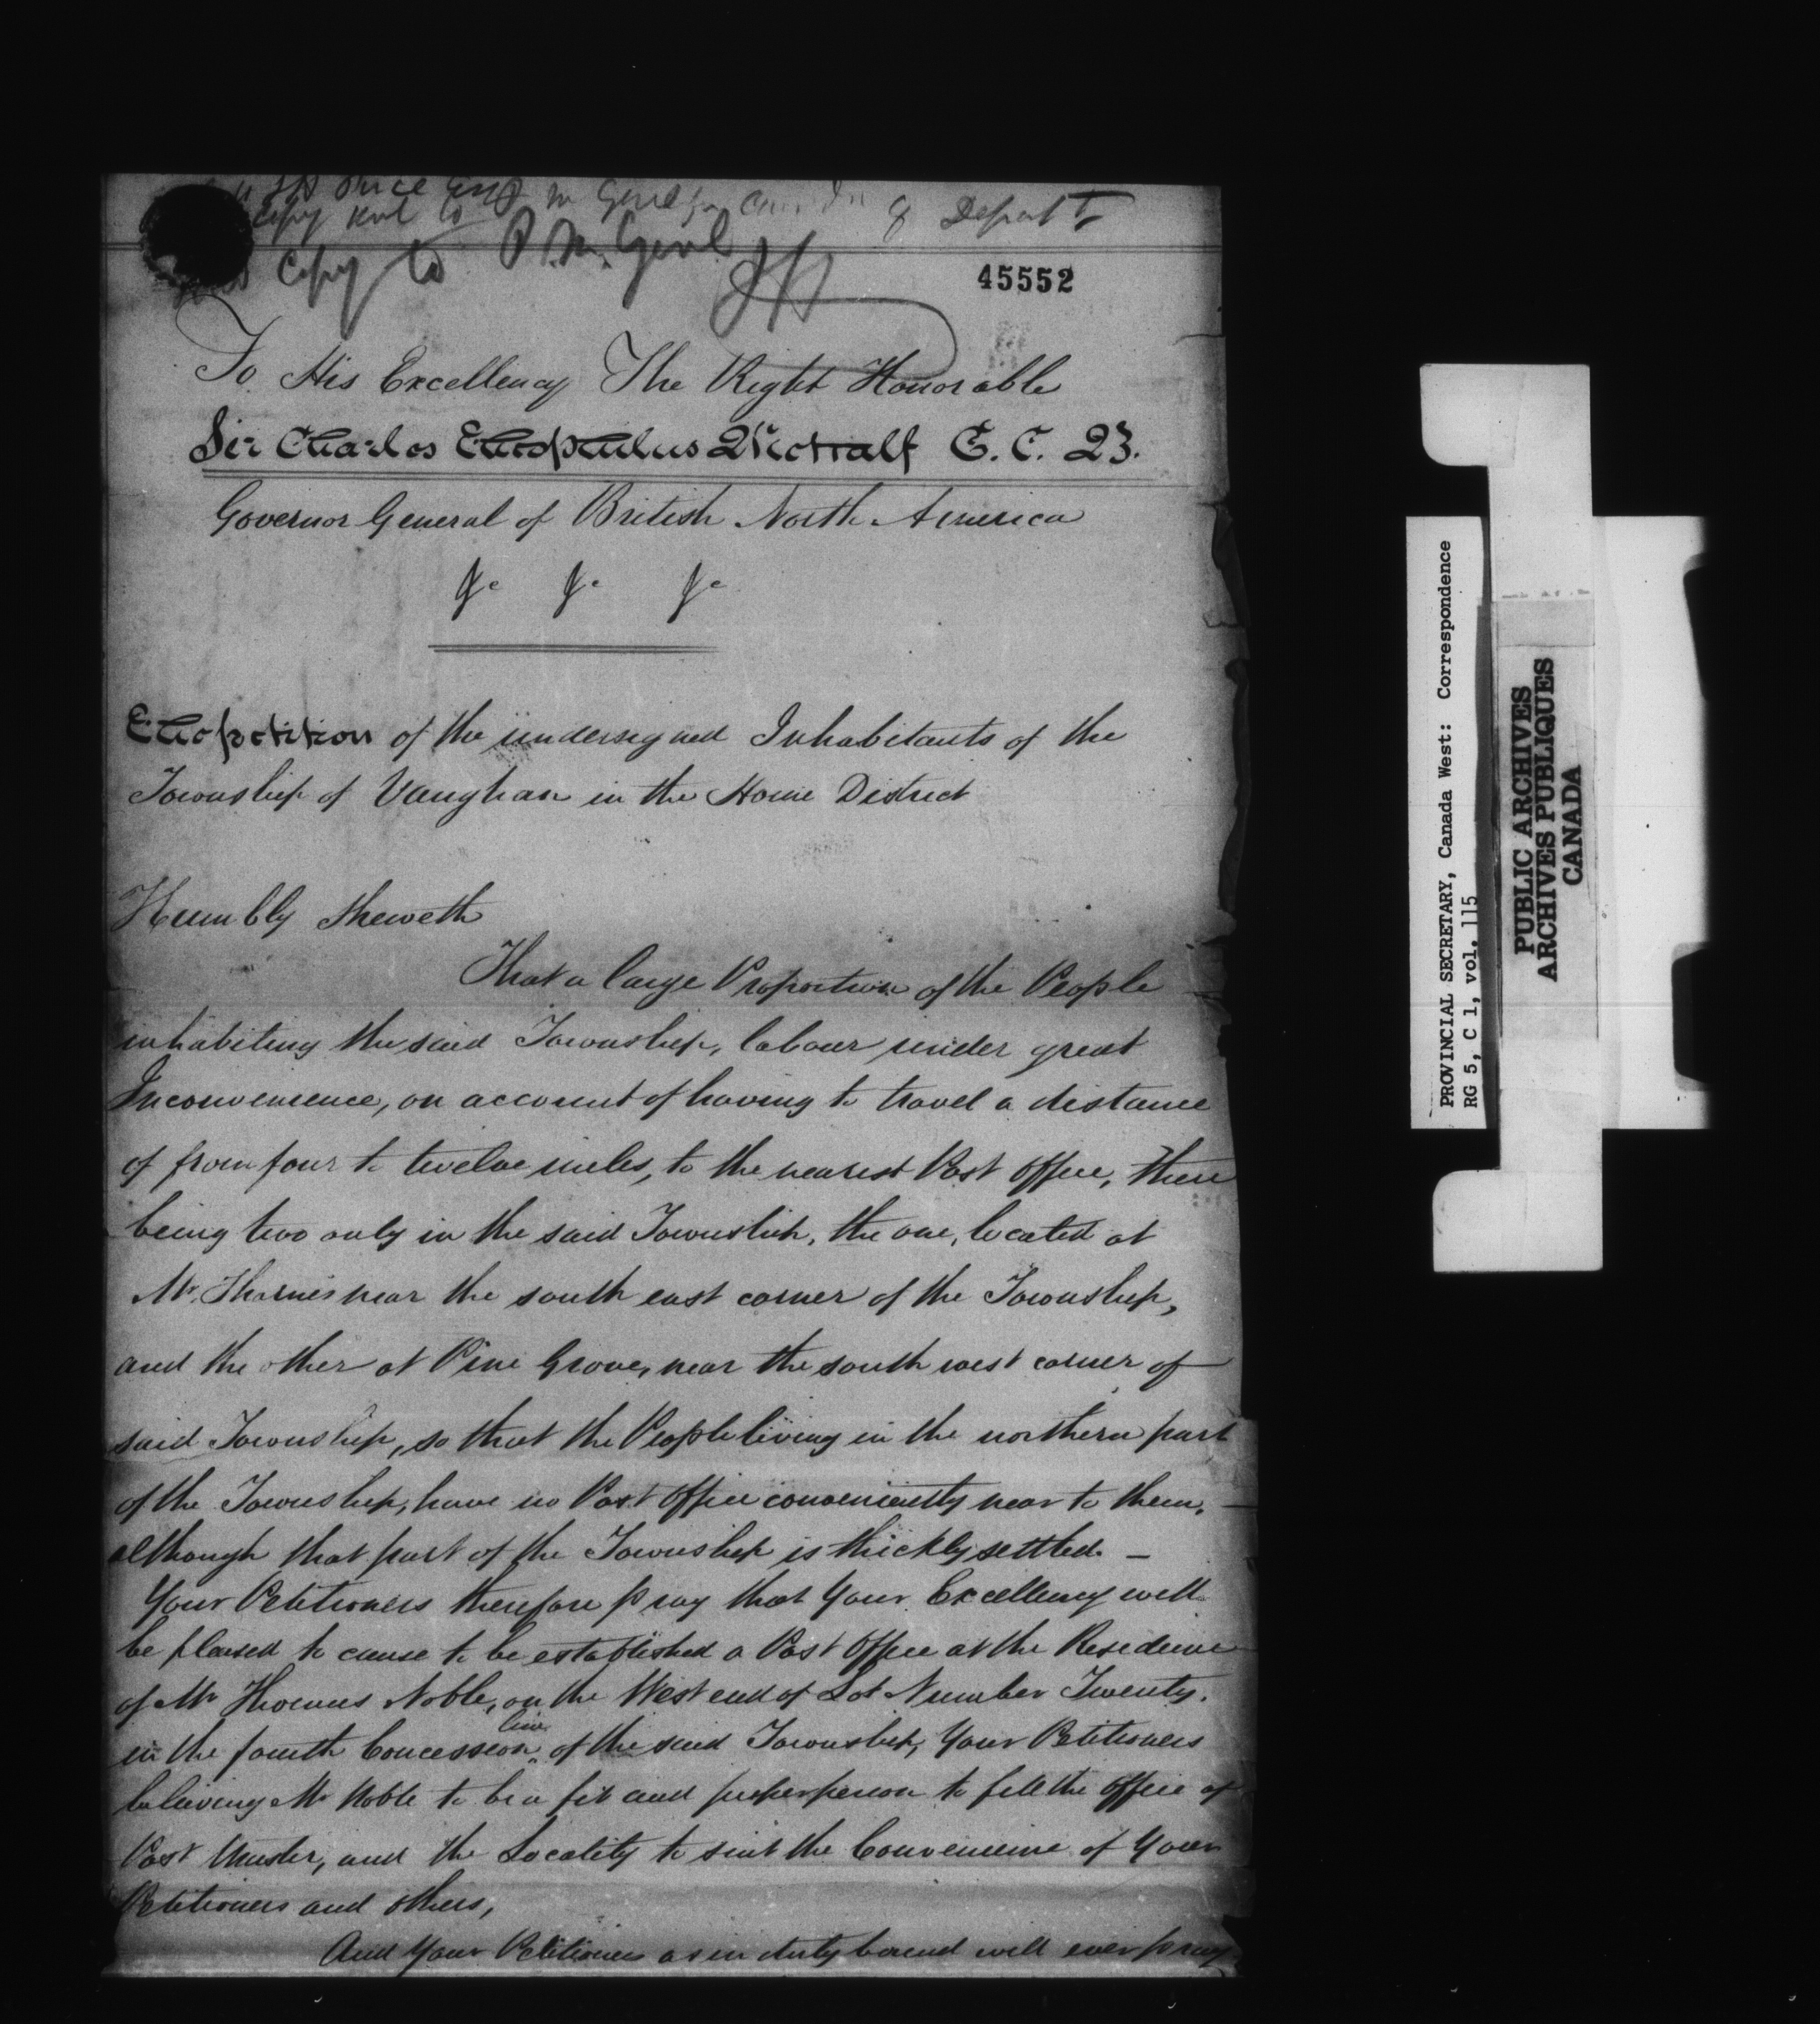 copy sent to P M Genl for
& Depart
Copy to P. M. Genl
JH
45552
To His Excellency The Right Honorable
Sir Charles Theophilus Metcalf G. C. B.
Governor General of British North America
&c &c &c
The petition of the undersigned Inhabitants of the
Township of Vaughan in the Home District
Humbly Sheweth
That a large Proportion of the People
inhabiting the said Township, labour under great
Inconvenience, on account of having to travel a distance
of from four to twelve miles, to the nearest Post Office, there
being two only in the said Township, the one, located at
Mr. Thornes near the south east corner of the Township,
and the other at Pine Grove, near the south west corner of
said Township, so that the People living in the northern part
of the Township, have no Post Office conveniently near to them,
although that part of the Township is thickly settled. —
Your Petitioners therefore pray that Your Excellency will
be pleased to cause to be established a Post Office at the Residence
of Mr Thomas Noble, on the West end of Lot Number Twenty,
line
in the fourth Concession of the said Township, Your Petitioners
believing Mr Noble to be a fit and proper person to fill the office of
Post Master, and the Locality to suit the Convenience of Your
Petitioners and others,
And Your Petitioners as in duty bound will ever pray
PROVINCIAL SECRETARY, Canada West: Correspondence
RG 5, C 1, vol. 115
PUBLIC ARCHIVES
ARCHIVES PUBLIQUES
CANADA